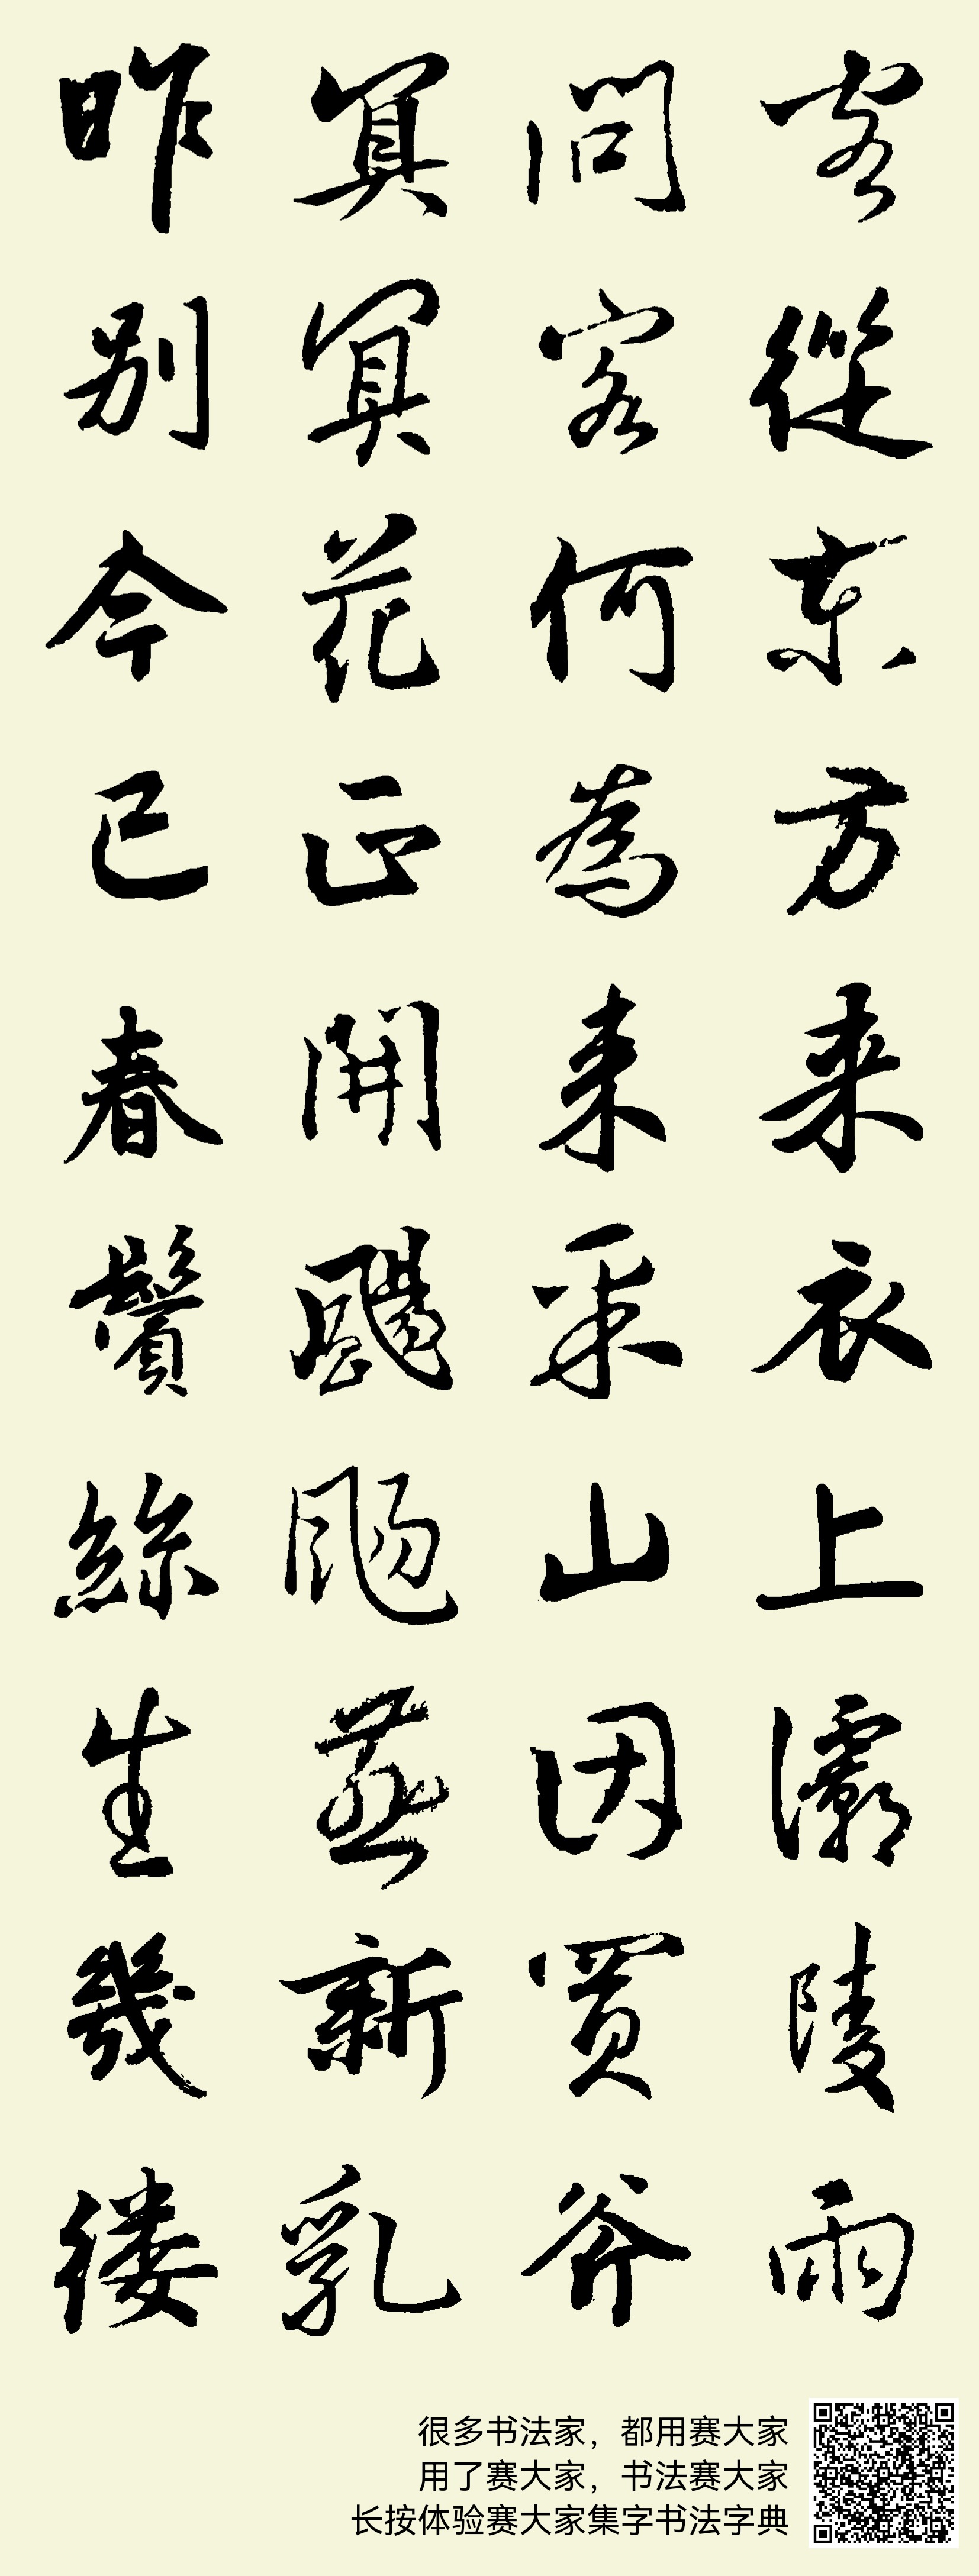 客從東方来衣上灞陵雨
問客何為来采山因買斧
冥冥花正開颺颺燕新乳
昨别今已春鬢絲生幾缕
很多书法家，都用赛大家
用了赛大家，书法赛大家
长按体验赛大家集字书法字典